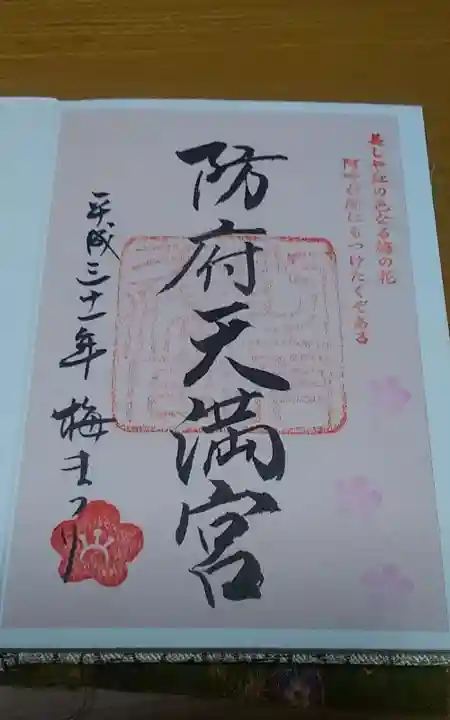 美しや紅の色なる梅の花
阿呼が顔にもつけたくぞある
防府天満宮
平成三十一年 梅まつり